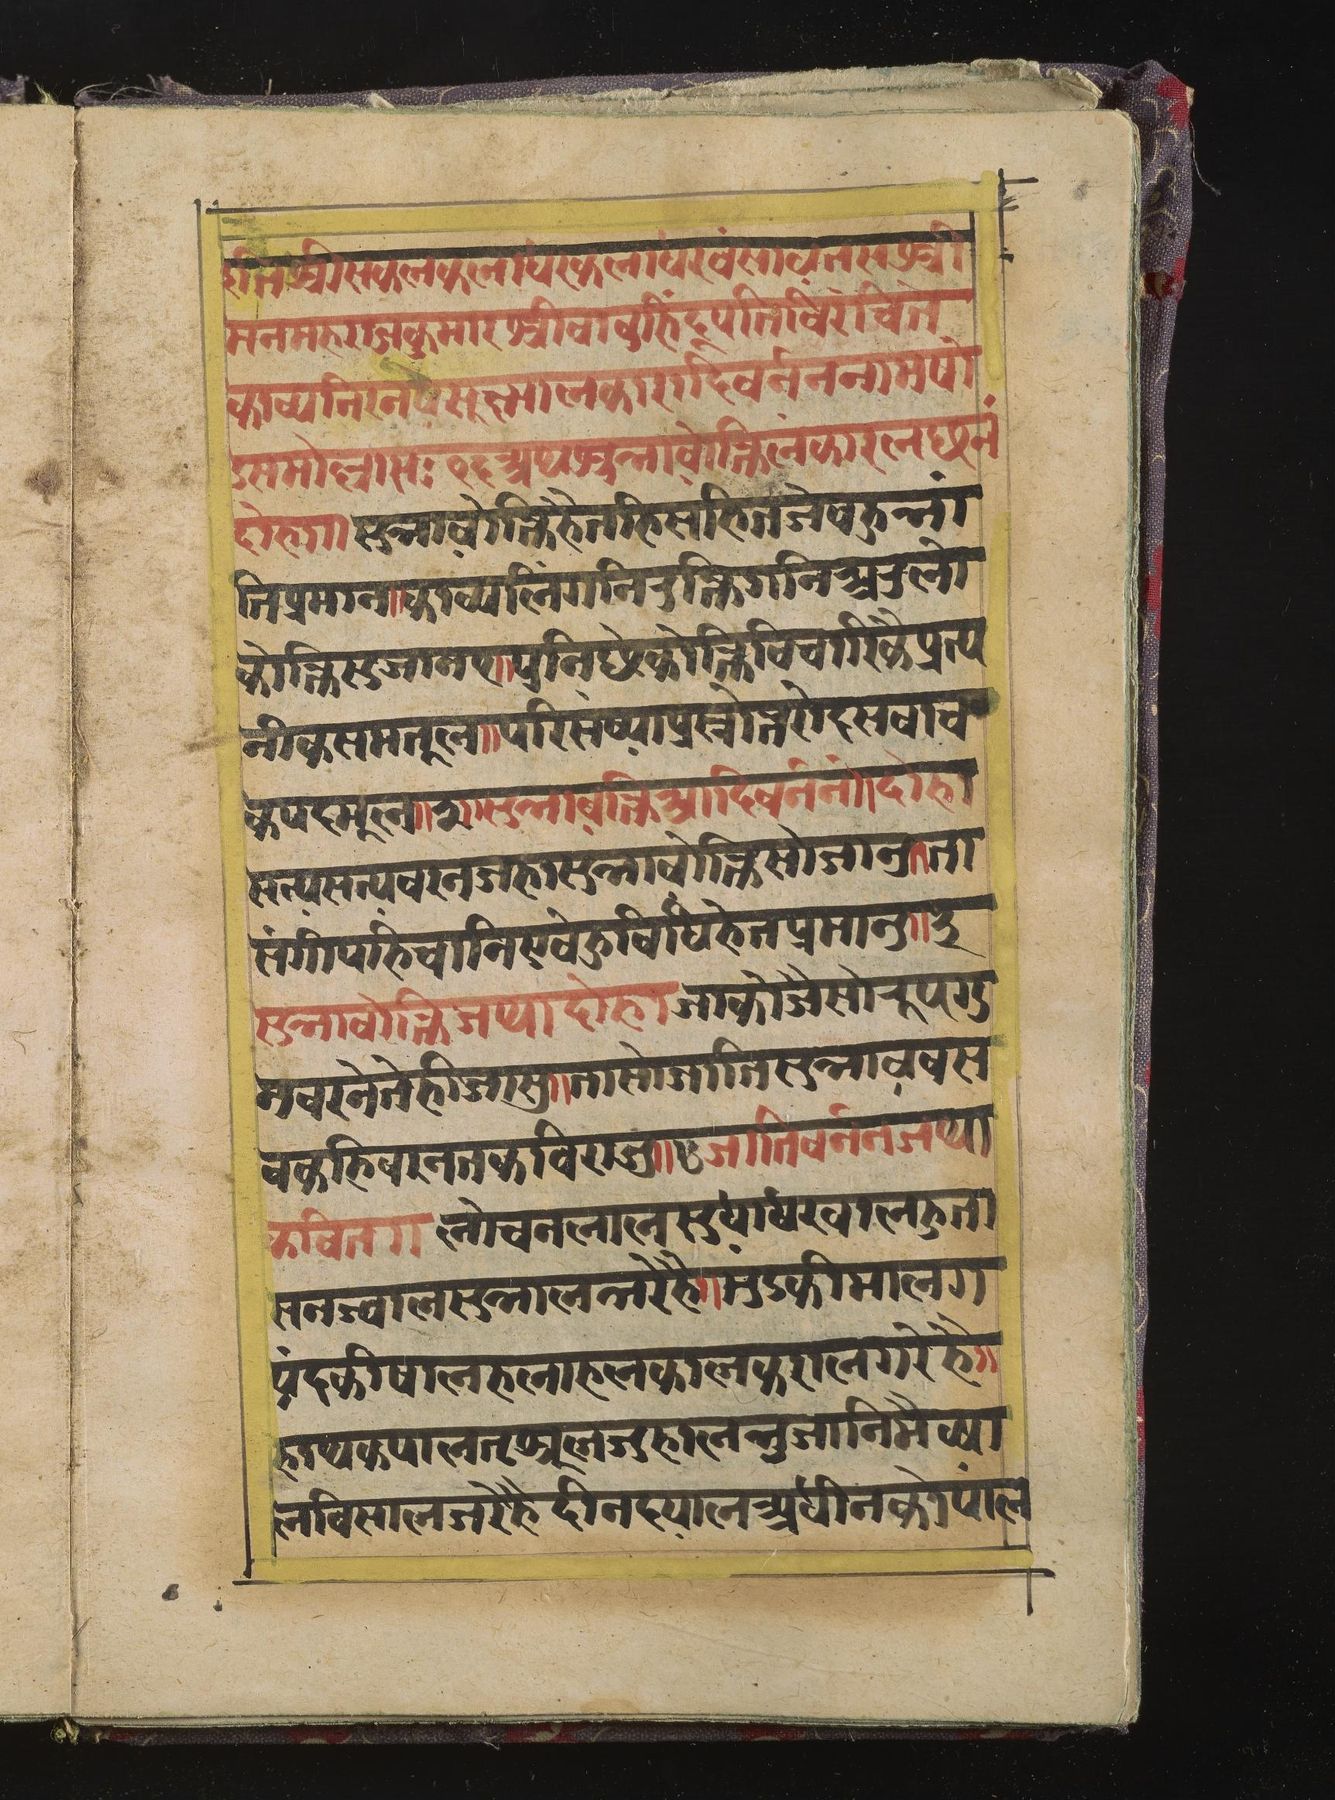 इति श्रीसकलकलाधरकलाधरवंसावतंसश्री
मनमहराजकुमारश्रीबाबूहिंदूपतिविरंचिते
काव्यनिरनयेसूछमालंकारादिवर्ननंनामषो
डसमोल्लासः १६ अथ सुभावोक्तिलंकारलछनं
दोहा॥ सुभावोक्तिहैतहिसहितजेबहुभां
तिप्रमान॥ काव्यलिंगनिरुक्तिगनिअरुलो
कोक्तिसुजान१॥ पुनिछेकोक्तिविचारिकैप्रत्य
नीकसमतूल॥ परिसंष्याप्रस्नोत्तरोदसवाच
कपदमूल॥२॥ सुभावोक्तिआदिवर्ननं॥ दोहा
सत्यसत्यवरनजहासुभावोक्तिसोजानु॥ ता
संगीपहिचानिएबहुविधिहेतप्रमानु॥३
सुभावोक्तिजथा दोहा जाकोजैसोरूपगु
नबरनेतेहीजासु॥ तासोजातिसुभावबस
बकहिबरनतकविराजु॥४ जातिवर्ननजथा
कवित्त॥ लोचनलालसुधाधरबालहुता
सनज्वालसुभालभरेहै॥ मुंडकीमालग
यंदकीषालहलाहलकालकरालगरेहै॥
हाथकपालत्रिसूलजुहालभुजानिमैब्या
लबिसालजरेहै दीनदयालअधीनकोपाल